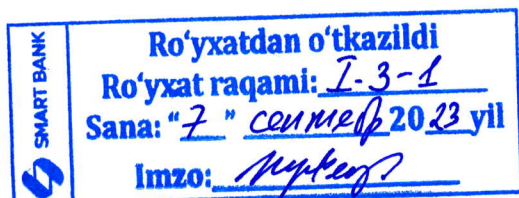 SMART BANK
Ro'yxatdan o'tkazildi
Ro'yxat raqami: I-3-1
Sana: "7" сентябр 2023 yil
Imzo: